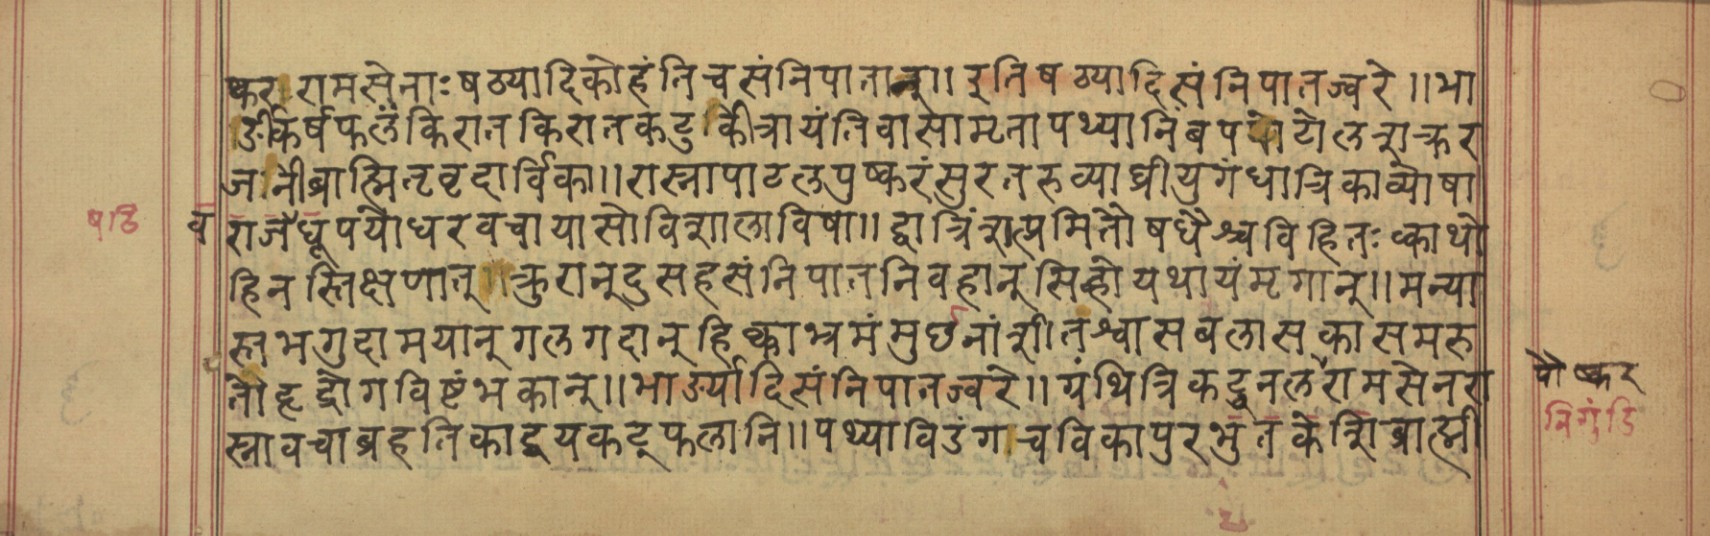 ष्करा रामसेनाः षठ्यादिको हंति च संनिपातान्॥ इति षठ्यादि संनिपातज्वरे ॥ भा
र्ङीकर्षफलं किरातकिरातकटुकी त्रायंति वासामृता पथ्या निंब पटोलत्राक्र र
जनी ब्राह्मि तृवृदार्विका॥ रास्ना पाठल पुष्करं सुरतरु व्याघ्रीयुगं धात्रिका व्योषा
राजैर्धूपयोधरवचायासो विशाला विषा॥ द्वात्रिंशत्प्रमितौषधैश्च विहितः क्काथो
हिनस्ति क्षणात् क्रुरान् दुसहसंनिपातनिवहान् सिंहो यथायं मृगान्॥ मन्या
स्तभगुदामयान् गलगदान् हिक्काभ्रमं मुर्छनां शीतश्वासबलासकासमरु
तो हृद्रोगविष्टंभकान्॥ भार्ङ्यादि संनिपातज्वरे॥ ग्रंथि त्रिकटु नल रामसेन रा
स्ना वचा ब्रहतिकाद्वय कट्फलानि॥ पथ्या विडंग चविका पुर भुतकेशि ब्राह्मी
षाठि
व
पौष्कर
निगुंडि